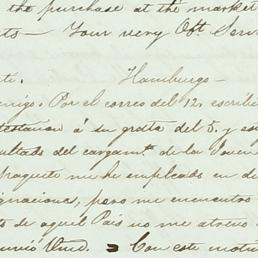 the purchase at the market
ts — Your very Obt. Serv
te. Hamburgo —
migo. Por el correo del 12, escribi
testaran á su grata del 5. y es
ultado del cargamto. de la Joven
paquete me he empleado en di
ignaciones, pero me encuentro
to de aquel Pais no me atrevo
Vmd. Con este motiv